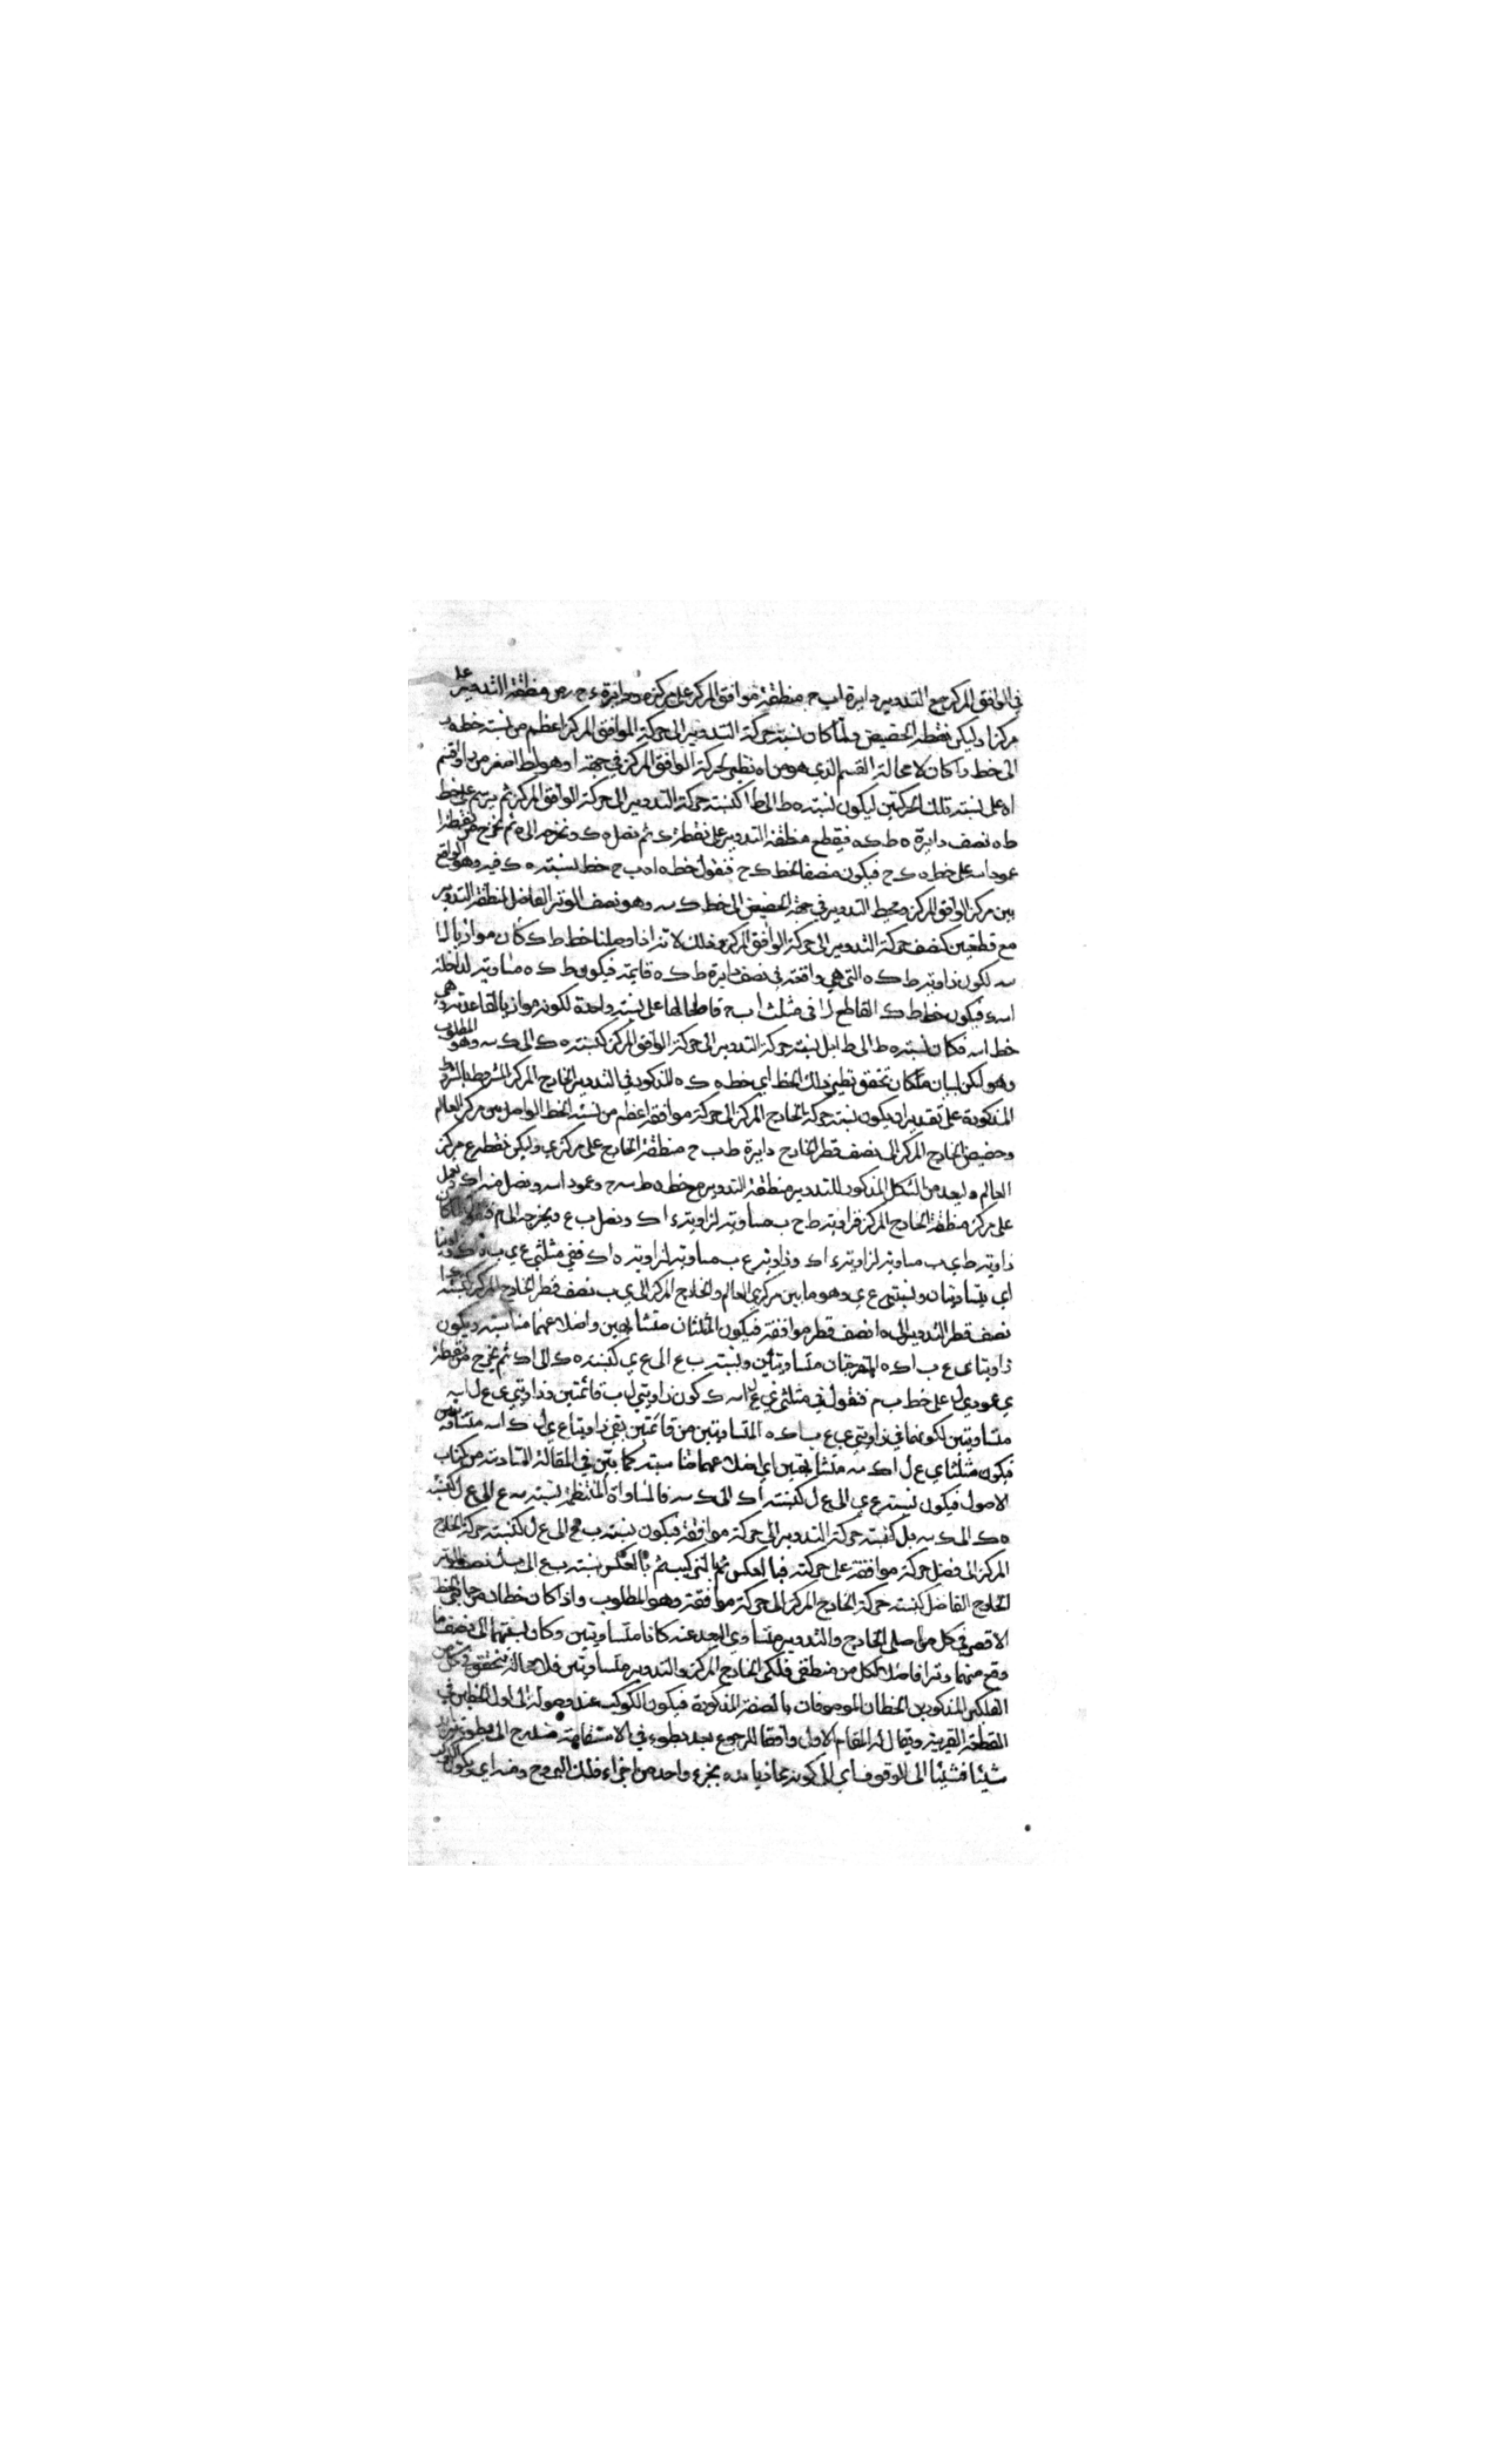 في الوافق المركز مع التدوير دايرة ا ب ح منطقة موافق المركز على مركز ه ودايرة ء ح ر من منطقة التدوير على
مركز ا وليكن نقطة الحضيض ولما كان نسبة حركة التدوير الى حركة الموافق المركز اعظم من نسبة خط ه ر
الى خط را كان لا محالة القسم الذي هو من اه نظير لحركة الوافق المركز في جهة ا وهو اط اصغر من را وقسم
اه على نسبة تلك الحركتين ليكون نسبة ه ط الى ط ا كنسبة حركة التدوير الى حركة الوافق المركز ثم يرسم على خط
ط ه نصف دايرة ه ط ك ه فيقطع منطقة التدوير على نقطة ك ثم نصل ه ك ونخرجه الى ح ثم نخرج من نقطة ا
عمود ا سه على خط ه ك ح فيكون منصفا لخط ك ح فنقول خط ه ا ب ح خط نسبة ه ك فيه وهو الواقع
بين مركز الوافق المركز ومحيط التدوير في جهة الحضيض الى خط ك سه وهو نصف الوتر الفاضل لمنطقة التدوير
مع قطعتين كنصف حركة التدوير الى حركة الوافق المركز وذلك لانه اذا وصلنا خط ط ك كان موازيا لـ ا
سه لكون زاوية ط ك ه التي هي واقعة في نصف دايرة ط ك ه قايمة فيكون ط ك ه مساوية لداخلة
ا سه ه فيكون خط ط ك القاطع في مثلث قاطعا لها على نسبة واحدة لكونه موازيا لقاعدته وهي
خط ا سه فكان نسبة ه ط الى ط ا بل نسبة حركة التدوير الى حركة الوافق المركز كنسبة ه ك الى ك سه وهو المطلوب
وهو لكن لبيان مكان تحقق نظير ذلك الخط اي خط ه ك ه المذكور في التدوير الخارج المركز المشروط بالشروط
المذكورة على تقدير ان يكون نسبة حركة الخارج المركز الى حركة موافقه اعظم من نسبة الخط الواصل بين مركز العالم
وحضيض الخارج المركز الى نصف قطر الخارج دايرة ط ب ح منطقة الخارج على مركز ي وليكن نقطة ع مركز
العالم وليعد من الشكل المذكور للتدوير منطقة التدوير مع خط ه ط سه ح وعمود ا سه ونصل منه ا ك ونعمل
على مركز منطقة الخارج المركز زاوية ط ح ب مساوية لزاوية ء ا ك ونصل ب ع ونخرجه الى م فنقول لما كان
زاوية ط ي ب مساوية لزاوية ء ا ك وزاوية ع ب مساوية لزاوية ه ا ك ففي مثلثي ع ي ب ه ا ك زاويتا
ا ي يتساويتان ونسبة ع ي وهو ما بين مركزي العالم والخارج المركز الى ي ب نصف قطر الخارج المركز كنسبة
نصف قطر التدوير الى ه ا نصف قطر موافقه فيكون المثلثان متشابهين واضلاعهما متناسبة ويكون
زاويتا ي ع ب ا ك ه المنفرجتان متساويتين ونسبة ب ع الى ع ي كنسبة ه ك الى ا ك ثم نخرج من نقطة
ي عمود ي ل على خط ب م فنقول في مثلثي ي ع ل ا سه ك كون زاويتي ل سه قائمتين وزاويتي ي ع ل ا سه
متساويتين لكونهما في زاويتي ي ع ب ا ك ه المتساويتين من قائمتين بقي زاويتا ع ي ل ك ا سه متساويتين
فيكون مثلثا ي ع ل ا ك سه متشابهين اي اضلاعهما متناسبة كما بين في المقالة السادسة من كتاب
الاصول فيكون نسبة ع ي الى ع ل كنسبة ا ك الى ك سه فالمساواة المنتظمة نسبة ب ع الى ع ل كنسبة
ه ك الى ك سه بل كنسبة حركة التدوير الى حركة موافقه فيكون نسبة ب ع الى ع ل كنسبة حركة الخارج
المركز الى فضل حركة موافقه على حركته فبالعكس ثم بالتركيب ثم بالعكس نسبة ب ع الى ب ل نصف الوتر
الخارج الفاضل كنسبة حركة الخارج المركز الى حركة موافقه وهو المطلوب واذا كان خطان من جانبي الخط
الاقصر في كل من اصلي الخارج والتدوير متساوي البعد عنه كانا متساويتين وكان نسبتهما الى نصف ما
وقع منهما وترا فاضلا لكل من منطقتي فلكي الخارج المركز والتدوير متساويتين فلا محالة يتحقق في كل من
الفلكين المذكورين الخطان الموصوفات بالصفة المذكورة فيكون الكوكب عند وصوله الى اول الخطين في
القطعة القريبة ويقال له المقام الاول واقفا للرجوع بعد بطوء في الاستقامة متدرج الى بطوء
شيئا فشيئا الى الوقوف اي الى كونه بجزء واحد من اجزاء فلك البروج